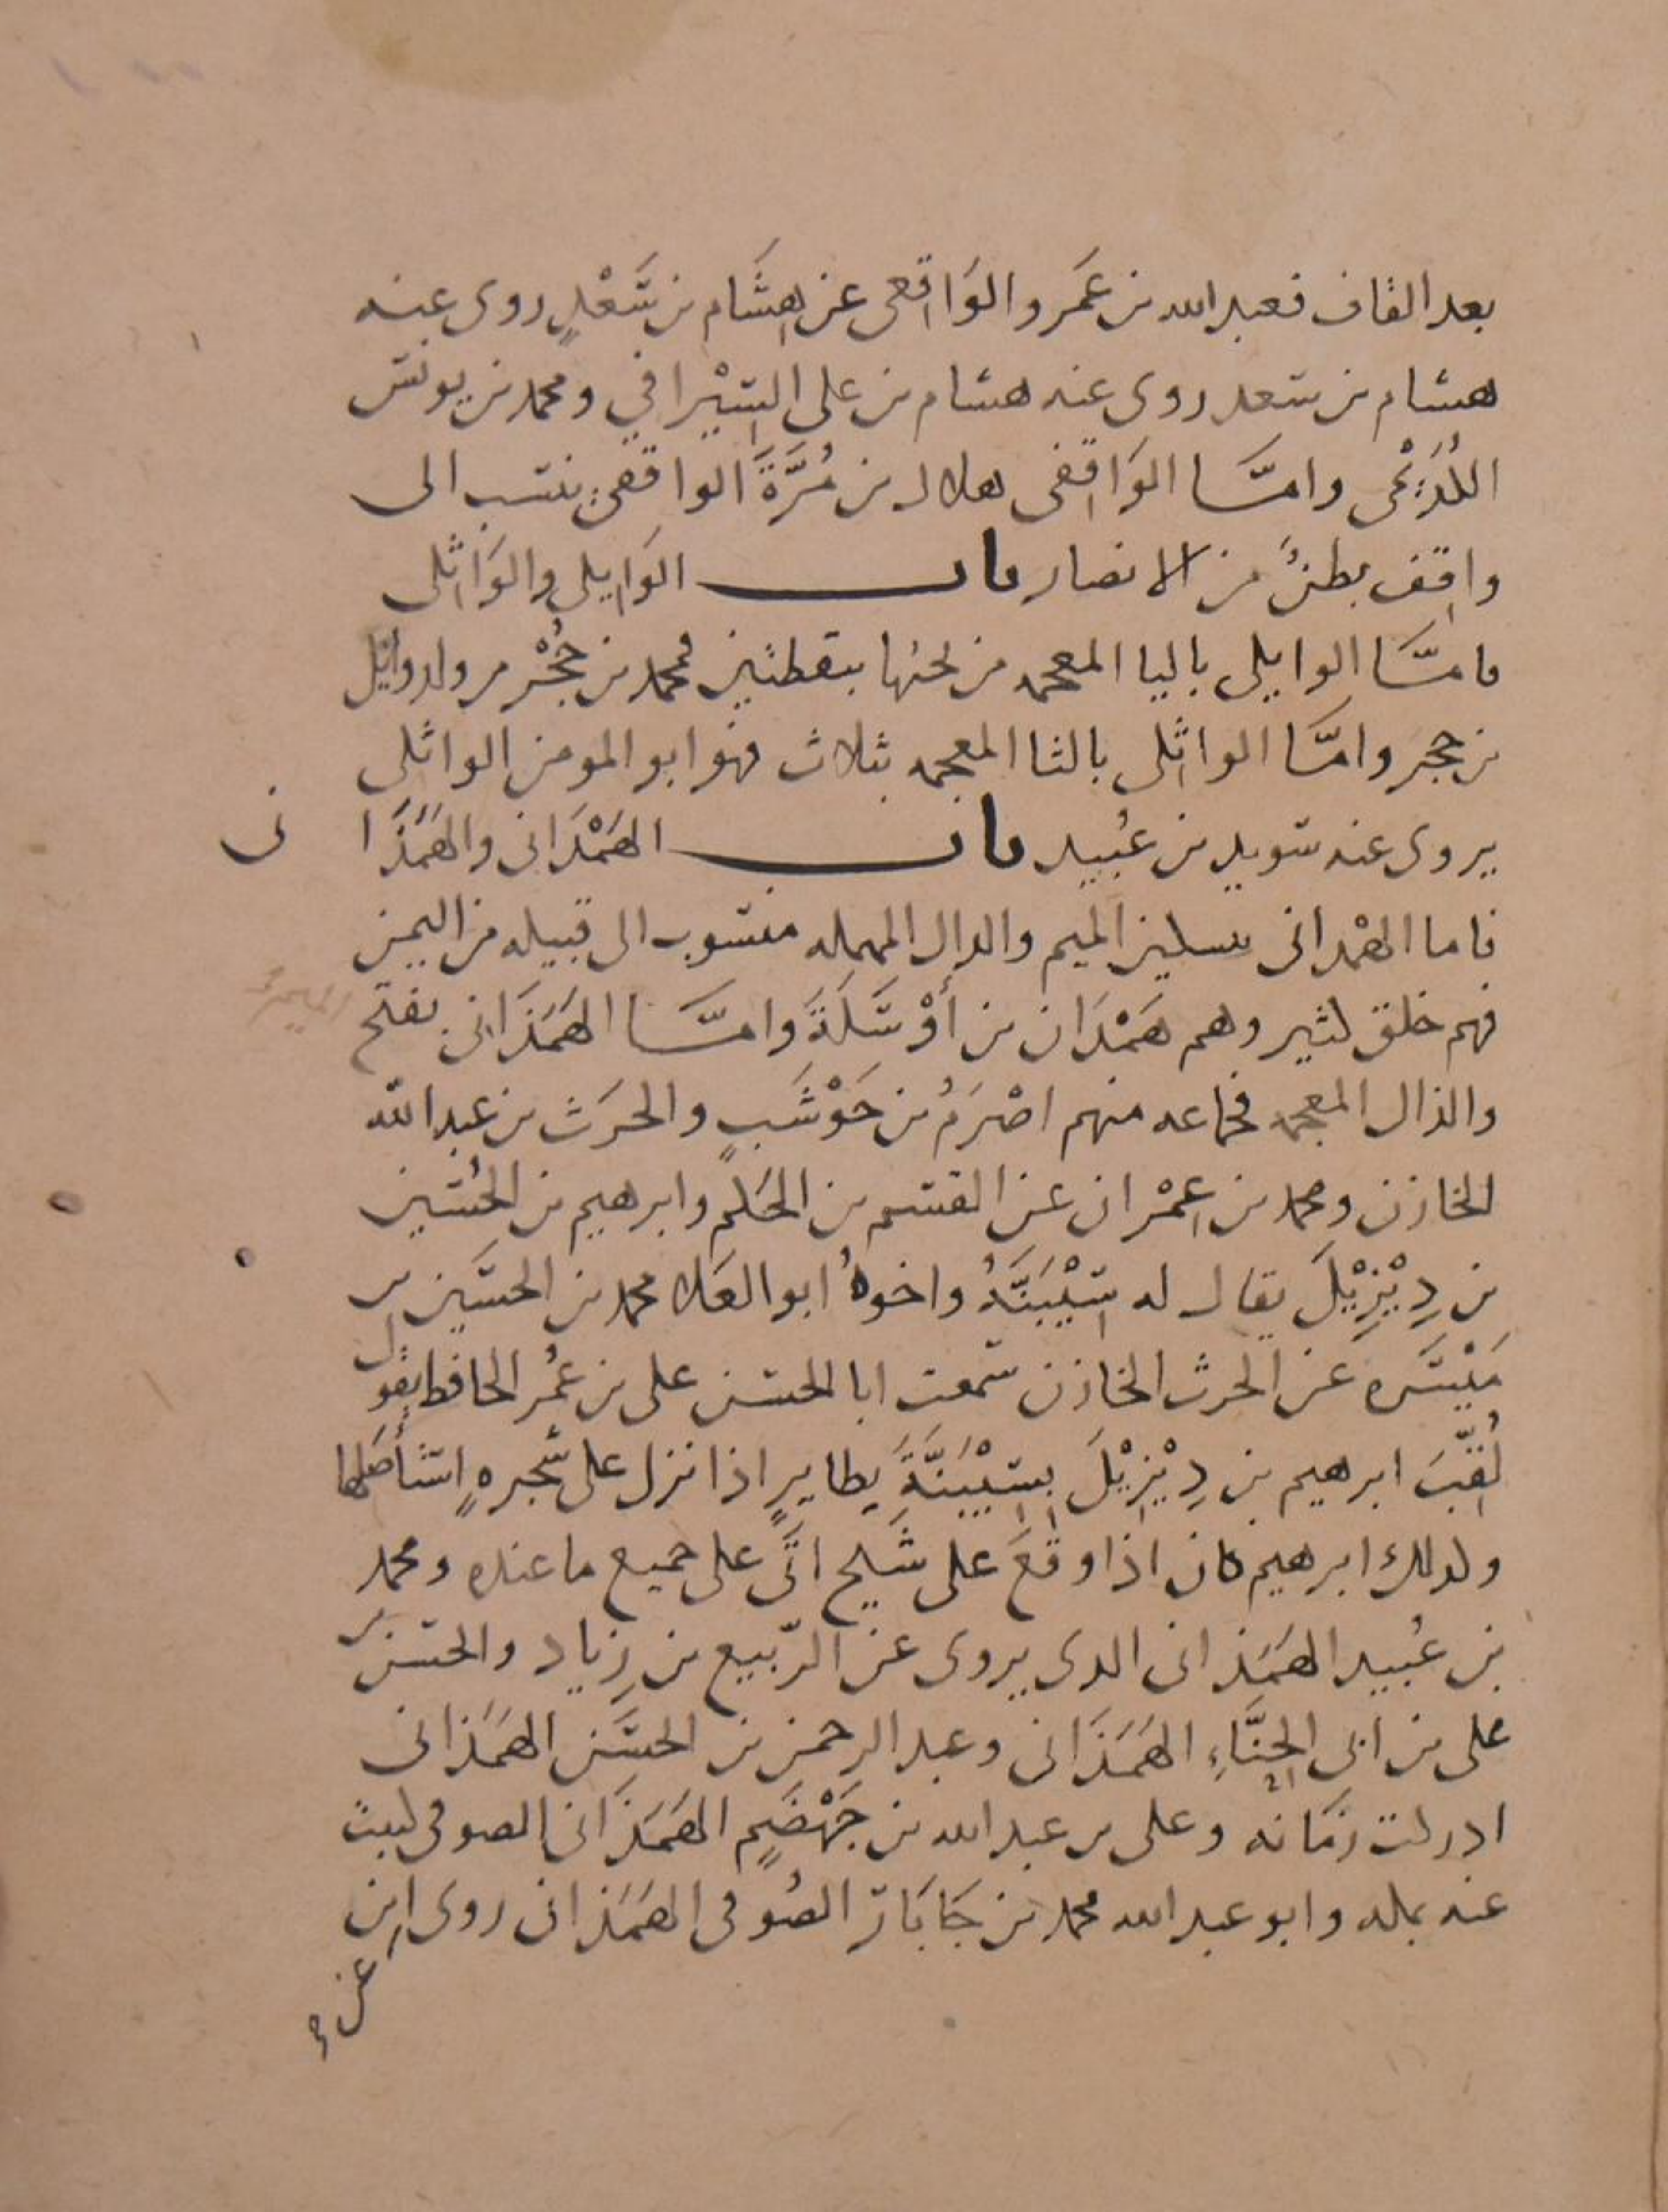 بعد القاف فعبد الله بن عَمرو الوَاقِعى عن هِشَام بن سَعْدٍ روى عنه
هشام بن سعد روى عنه هشام بن على السِّيْرافي ومحمد بن يونس
الكُدَيْمى وامَّا الوَاقِفى هلال بن مُرَّةَ الواقفىُّ ينتسب الى
واقِف بطنٌ من الانصار باب الوَايِلى والوَاثِلى
فامَّا الوايلى باليا المعجمه من تحتها بنقطتين فمحمد بن حُجْر من ولد وايل
بن حجر وامَّا الواثِلى بالثا المعجمه بثلاث فهو ابو المومن الواثلى
يروى عنه سويد بن عُبيد باب الهَمْدَانى والهَمَذَا نى
فاما الهمْدانى بتسكين الميم والدال المهمله منسوب الى قبيله من اليمن
فهم خلق كثير وهم هَمْدَان بن أَوْسَلَةَ وامَّا الهَمَذَانى بفتح الميم
والذال المعجمه فجماعه منهم اصْرَمُ بن حَوْشَبٍ والحرَث بن عبد الله
الخازن ومحمد بن عِمْران عن القسم بن الحَكم وابرهيم بن الحُسَين
بن دِيْزِيْلَ يقال له سِيْبَنَّهُ واخوهُ ابو العَلا محمد بن الحسَين بن
مَيْسَره عن الحرث الخازن سَمعت ابا الحسن على بن عُمر الحافظ يقول
لُقِّبَ ابرهيم بن دِيْزِيْلَ بِسِيْبَنَّةَ بطايرٍ اذا نزل على شجرهٍ استأصَلها
ولذلك ابرهيم كان اذا وقعَ على شَيخ اتَى على جميع ما عنده ومحمد
بن عُبيد الهمَذانى الذى يروى عن الرّبيع بن زِياد والحسن بن
على بن ابى الحِنَّاءِ الهَمَذَانى وعبد الرحمن بن الحسَن الهمَذانى
ادركت زمَانه وعلى بن عبد الله بن جَهْضَمٍ الهمَذَانى الصوفى كتبت
عنه بمكه وابو عبد الله محمد بن جَابَار الصُوفى الهمَذانى روى ابن
عن